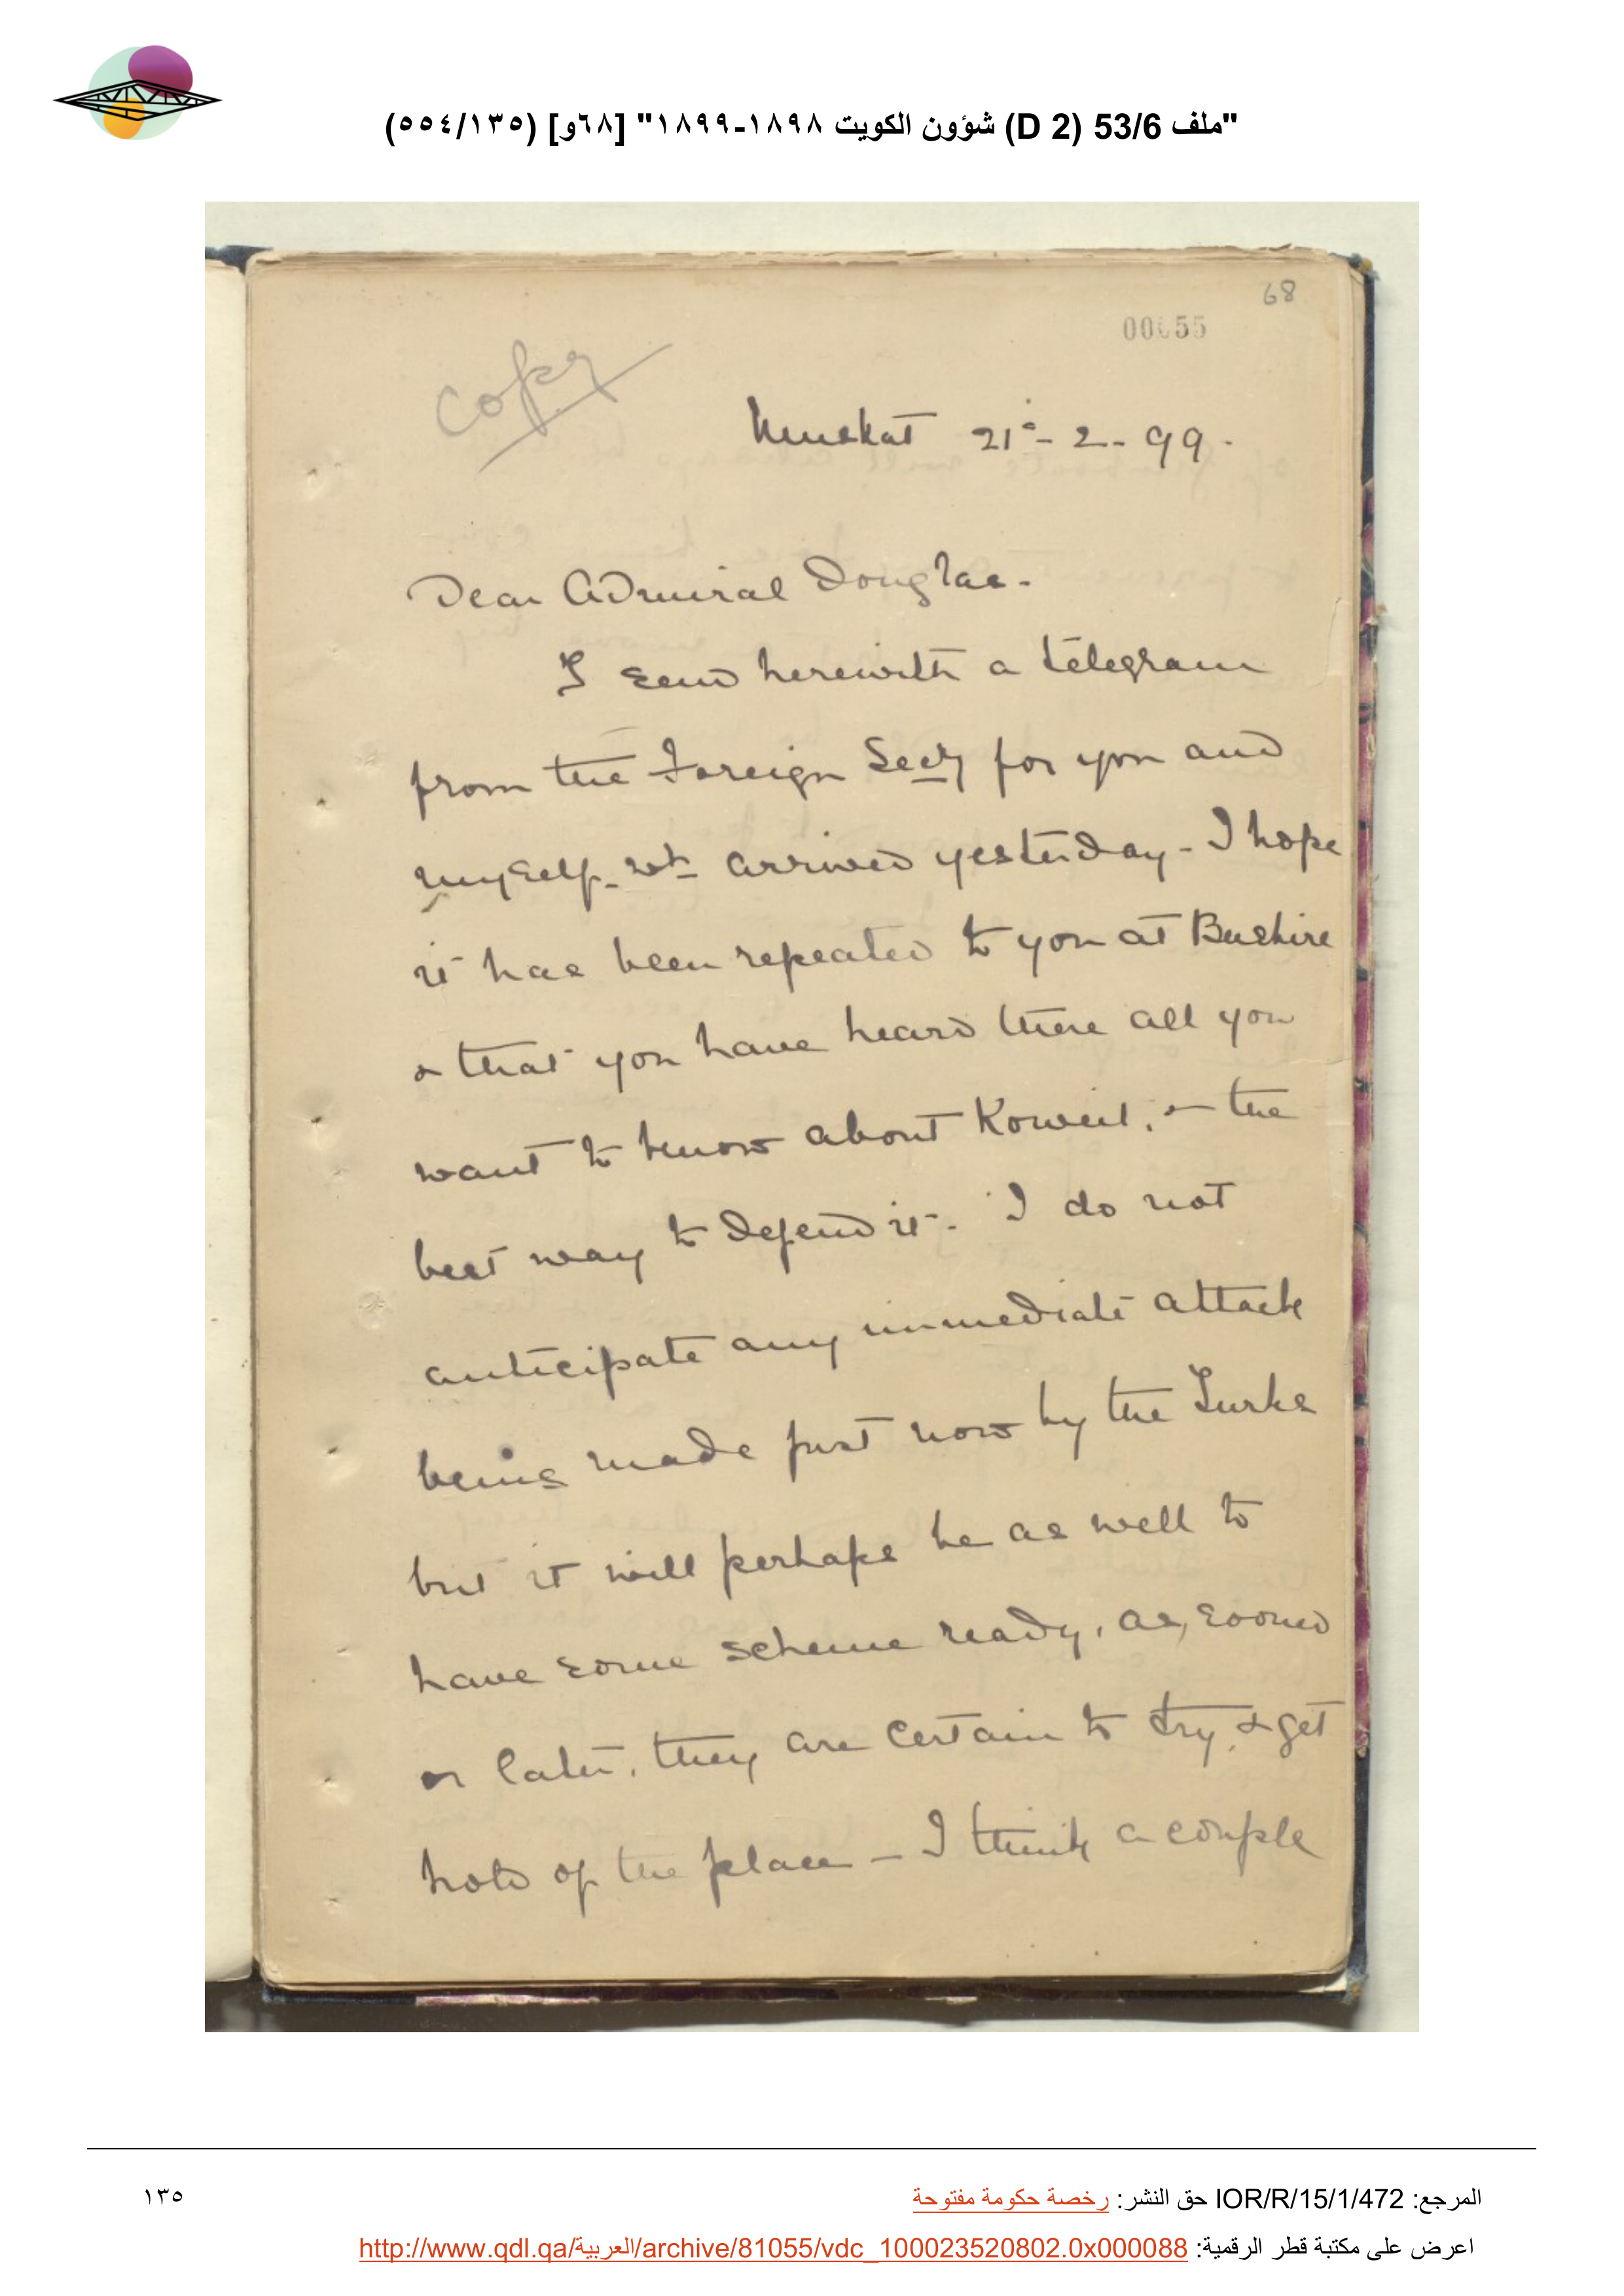 "ملف 53/6 (D 2) شؤون الكويت ١٨٩٨-١٨٩٩" [٦٨و] (٥٥٤/١٣٥)
68
00055
Copy
Muskat 21st - 2 - 99 -
Dear Admiral Douglas -
I send herewith a telegram
from the Foreign Secy for you and
myself - wh arrived yesterday - I hope
it has been repeated to you at Bushire
& that you have heard there all you
want to know about Koweit, & the
best way to defend it - I do not
anticipate any immediate attack
being made just now by the Turks
but it will perhaps be as well to
have some scheme ready, as, sooner
or later, they are certain to try & get
hold of the place - I think a couple
المرجع: IOR/R/15/1/472 حق النشر: رخصة حكومة مفتوحة
١٣٥
اعرض على مكتبة قطر الرقمية: http://www.qdl.qa/العربية/archive/81055/vdc_100023520802.0x000088